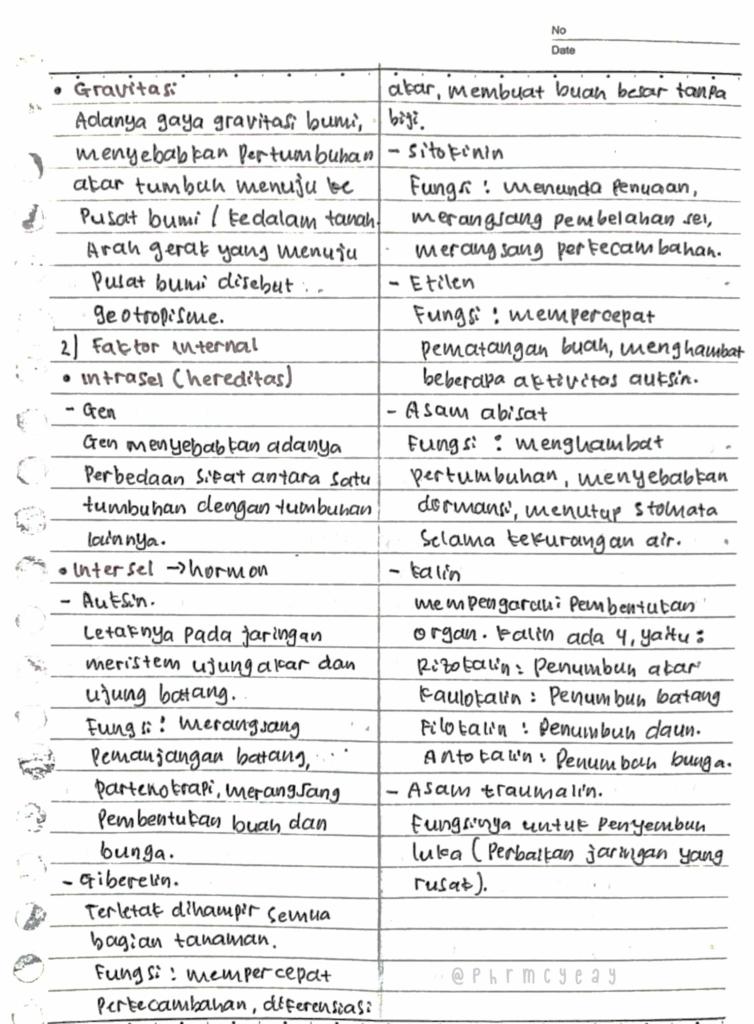 No
Date
• Gravitasi
Adanya gaya gravitasi bumi,
menyebabkan pertumbuhan
akar tumbuh menuju ke
Pusat bumi / kedalam tanah.
Arah gerak yang menuju
Pusat bumi disebut
geotropisme.
2) Faktor internal
• intrasel (hereditas)
- Gen
Gen menyebabkan adanya
Perbedaan sifat antara satu
tumbuhan dengan tumbuhan
lainnya.
• Intersel → hormon
- Auksin.
Letaknya pada jaringan
meristem ujung akar dan
ujung batang.
Fungsi : merangsang
Pemanjangan batang,
partenokrapi, merangsang
Pembentukan buah dan
bunga.
- Giberelin.
Terletak dihampir semua
bagian tanaman.
Fungsi : mempercepat
Perkecambahan, diferensiasi
akar, membuat buah besar tanpa
biji.
- Sitokinin
Fungsi : menunda penuaan,
merangsang pembelahan sel,
merangsang perkecambahan.
- Etilen
Fungsi : mempercepat
pematangan buah, menghambat
beberapa aktivitas auksin.
- Asam abisat
Fungsi : menghambat
pertumbuhan, menyebabkan
dormansi, menutup stomata
Selama kekurangan air.
- kalin
mempengaruhi Pembentukan
organ. kalin ada 4, yaitu :
Rizokalin : Penumbuh akar
kaulokalin : Penumbuh batang
Filokalin : Penumbuh daun.
Antokalin : Penumbuh bunga.
- Asam traumalin.
Fungsinya untuk Penyembuh
luka (Perbaikan jaringan yang
rusak).
@phrmcyeay